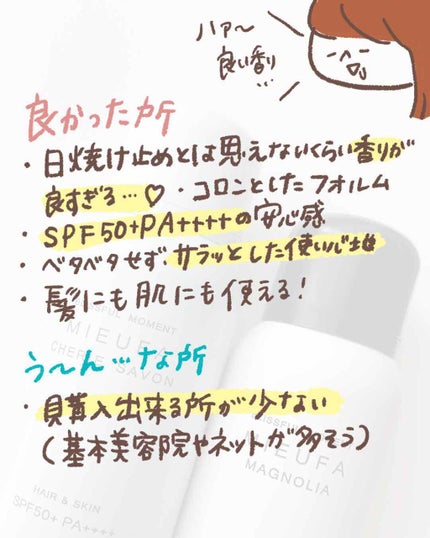 ハァ〜
良い香り
…
良かった所
・日焼け止めとは思えないくらい香りが
良すぎる…♡ ・コロンとしたフォルム
・SPF50+PA++++の安心感
・ベタベタせず、サラッとした使い心地
・髪にも肌にも使える!
う〜ん…な所
・買入出来る所が少ない
(基本美容院やネットが多そう)
BLISSFUL MOMENT
MIEUFA
CHERIE SAVON
HAIR & SKIN
SPF50+ PA++++
MIEUFA
MAGNOLIA